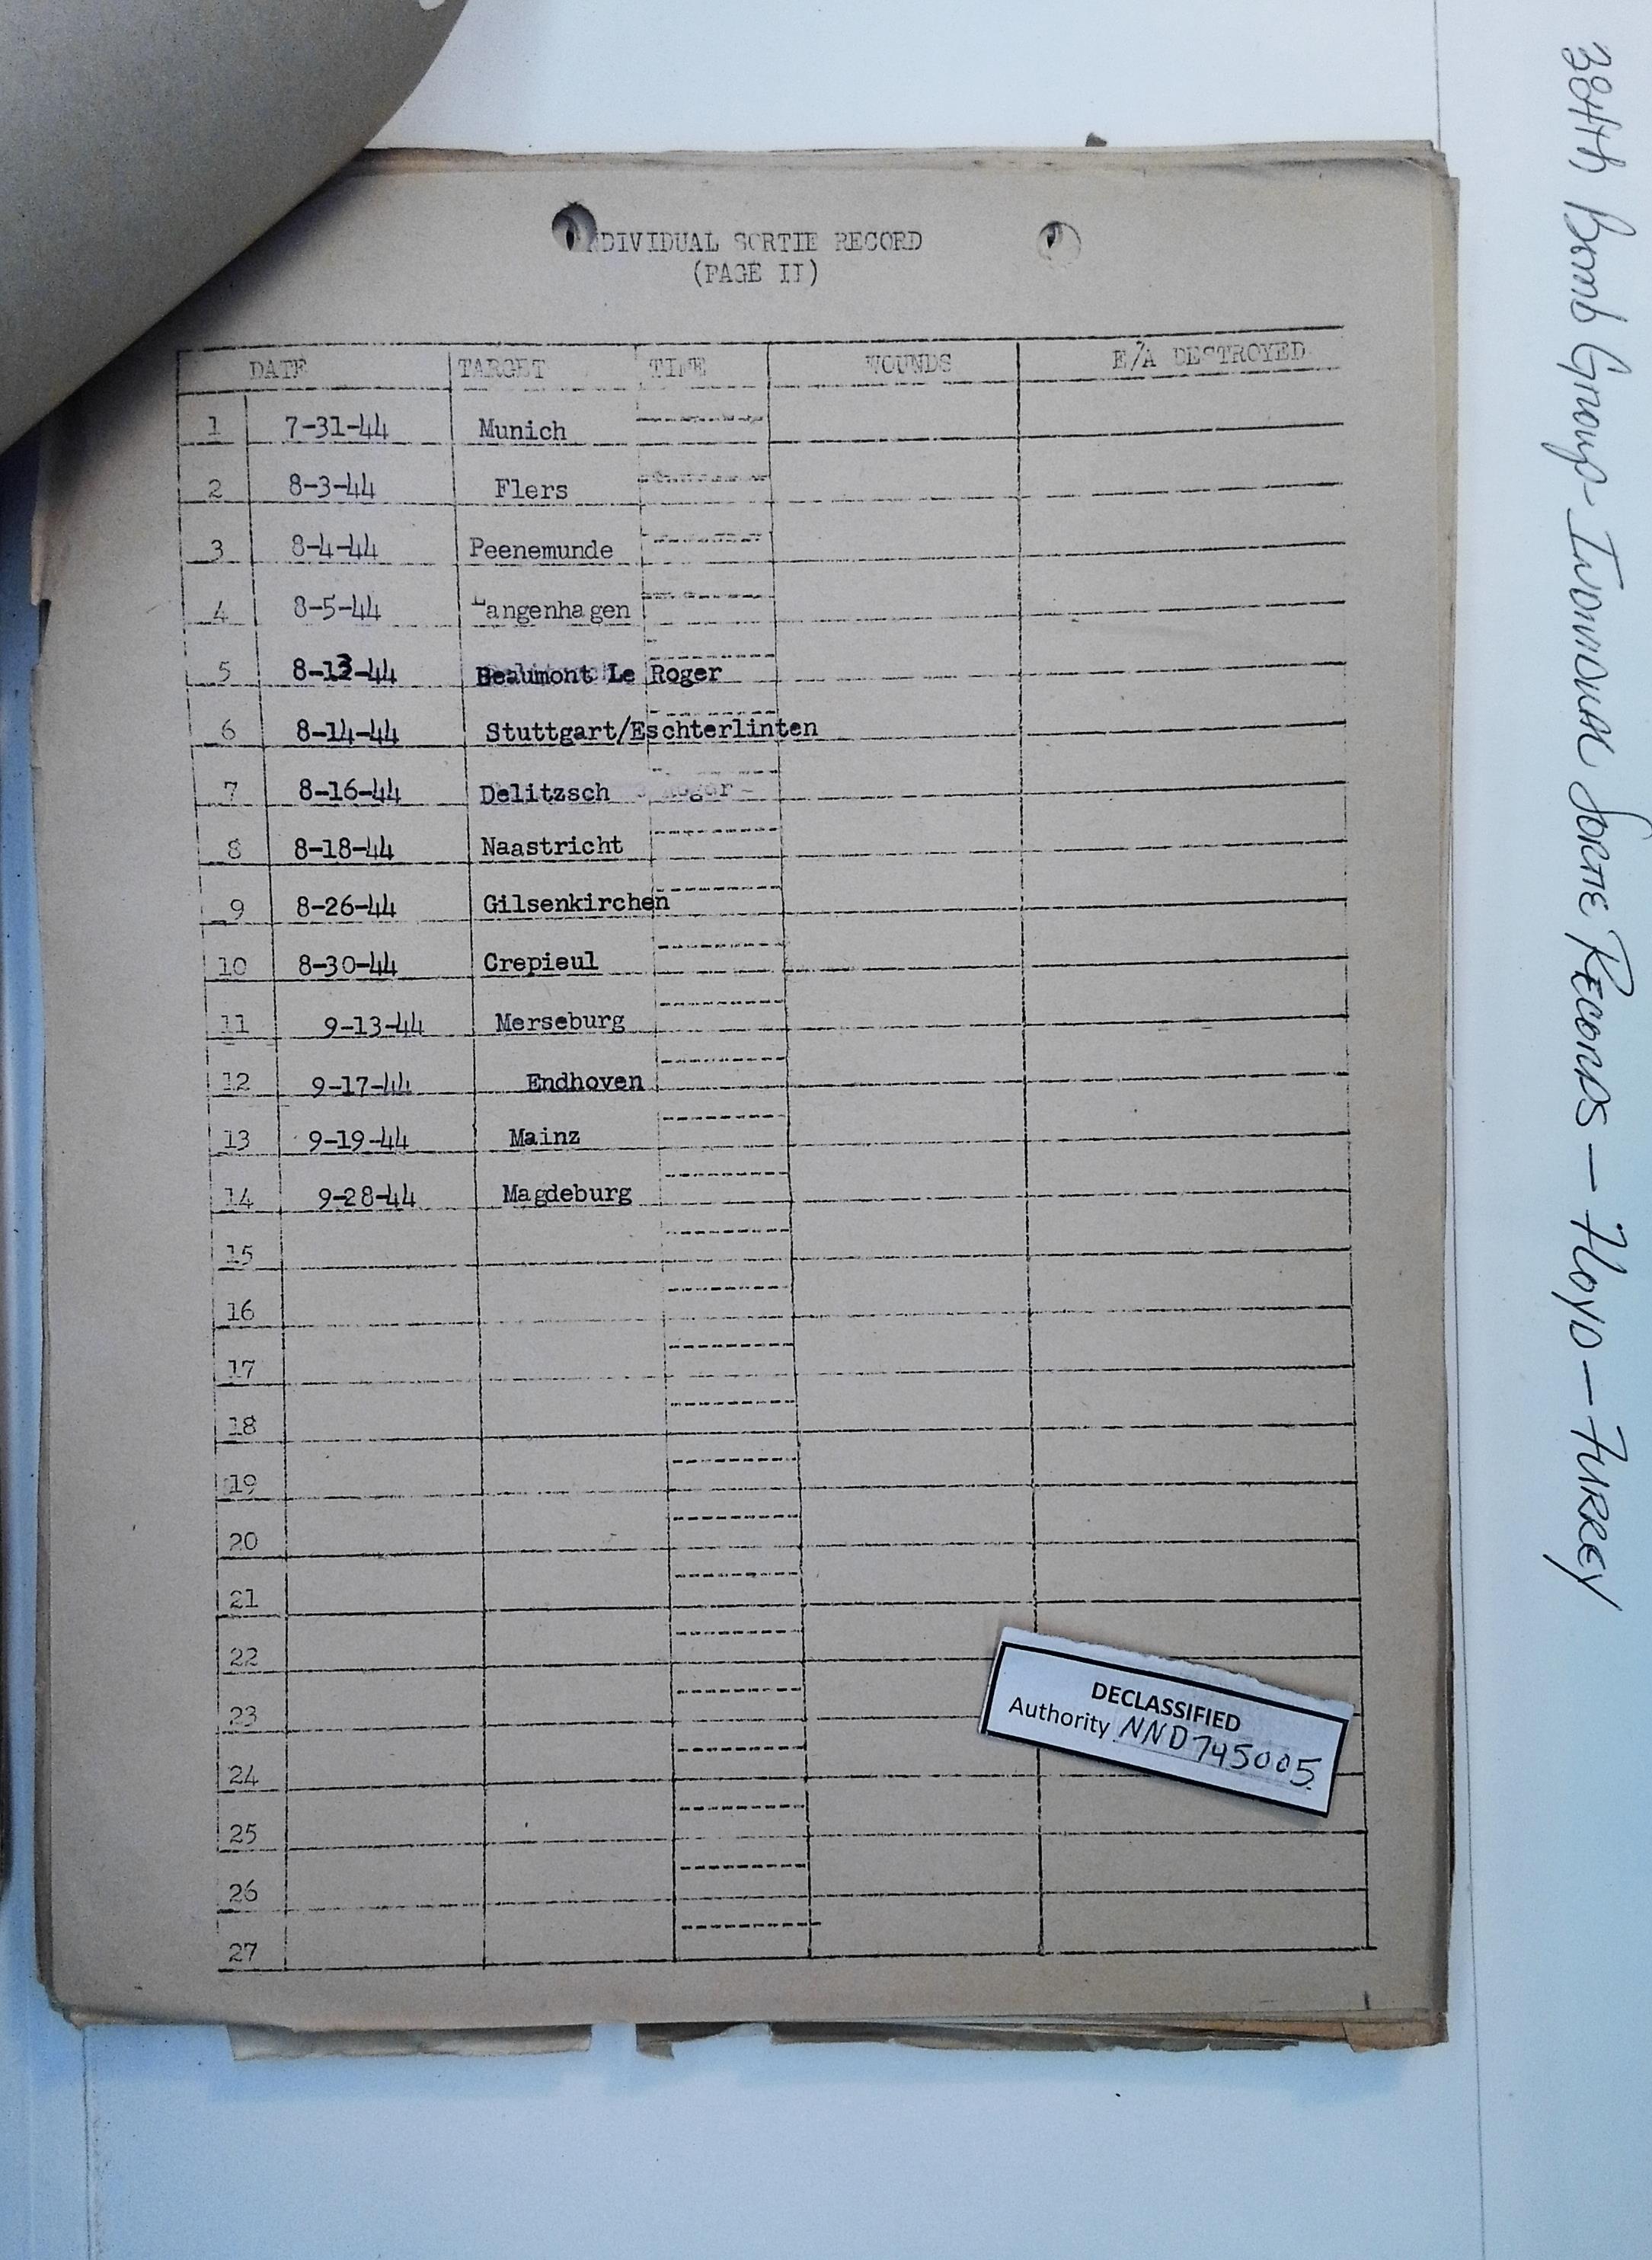 NDIVIDUAL SORTIE RECORD
(PAGE II)
DATE TARGET TIME WOUNDS E/A DESTROYED
1 7-31-44 Munich
2 8-3-44 Flers
3 8-4-44 Peenemunde
4 8-5-44 Langenhagen
5 8-13-44 Beaumont Le Roger
6 8-14-44 Stuttgart/Eschterlinten
7 8-16-44 Delitzsch
8 8-18-44 Naastricht
9 8-26-44 Gilsenkirchen
10 8-30-44 Crepieul
11 9-13-44 Merseburg
12 9-17-44 Endhoven
13 9-19-44 Mainz
14 9-28-44 Magdeburg
15
16
17
18
19
20
21
22
23
24
25
26
27
DECLASSIFIED
Authority NND745005
384th Bomb Group - Individual Sortie Records - Floyd - Furrey